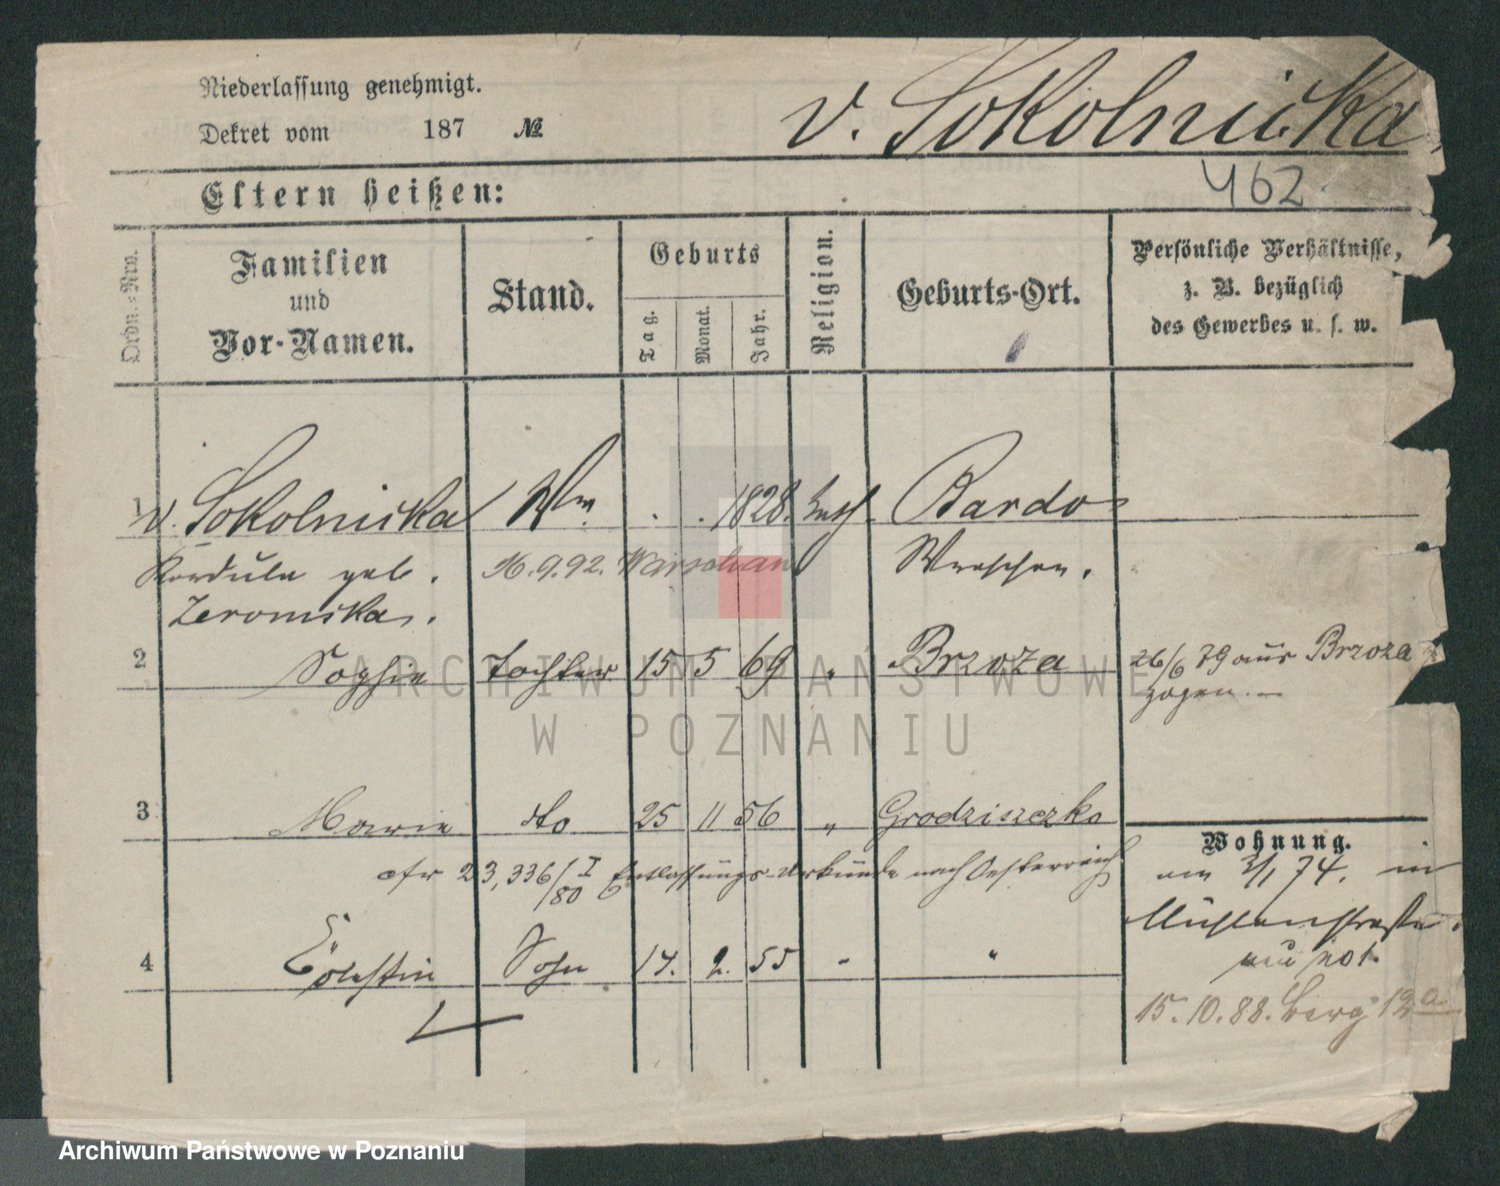 Niederlassung genehmigt.
Dekret vom 187 №
v. Sokolnicka
462
Eltern heißen:
Ordn.-Nro.
Familien und Vor-Namen.
Stand.
Geburts
Tag.
Monat.
Jahr.
Religion.
Geburts-Ort.
Persönliche Verhältnisse,
z. B. bezüglich
des Gewerbes u. s. w.
1 v. Sokolnicka Ww. . . 1828. kath Bardo
Kordula geb. 16.9.92. Warschau Wreschen.
Zeromska.
2 Sophie Tochter 15 5 69 " Brzoza 26/6 79 aus Brzoza
zogen.
3 Marie dto 25 11 56 " Grodziszczko
Wohnung.
cfr 23,336/I/80 Entlassungs-Urkunde nach Oesterreich
am 2/1 74. in
Mühlenstraße.
4 Cölestin Sohn 17. 2. 55 " "
15.10.88. Berg 12a
ARCHIWUM PAŃSTWOWE
W POZNANIU
Archiwum Państwowe w Poznaniu